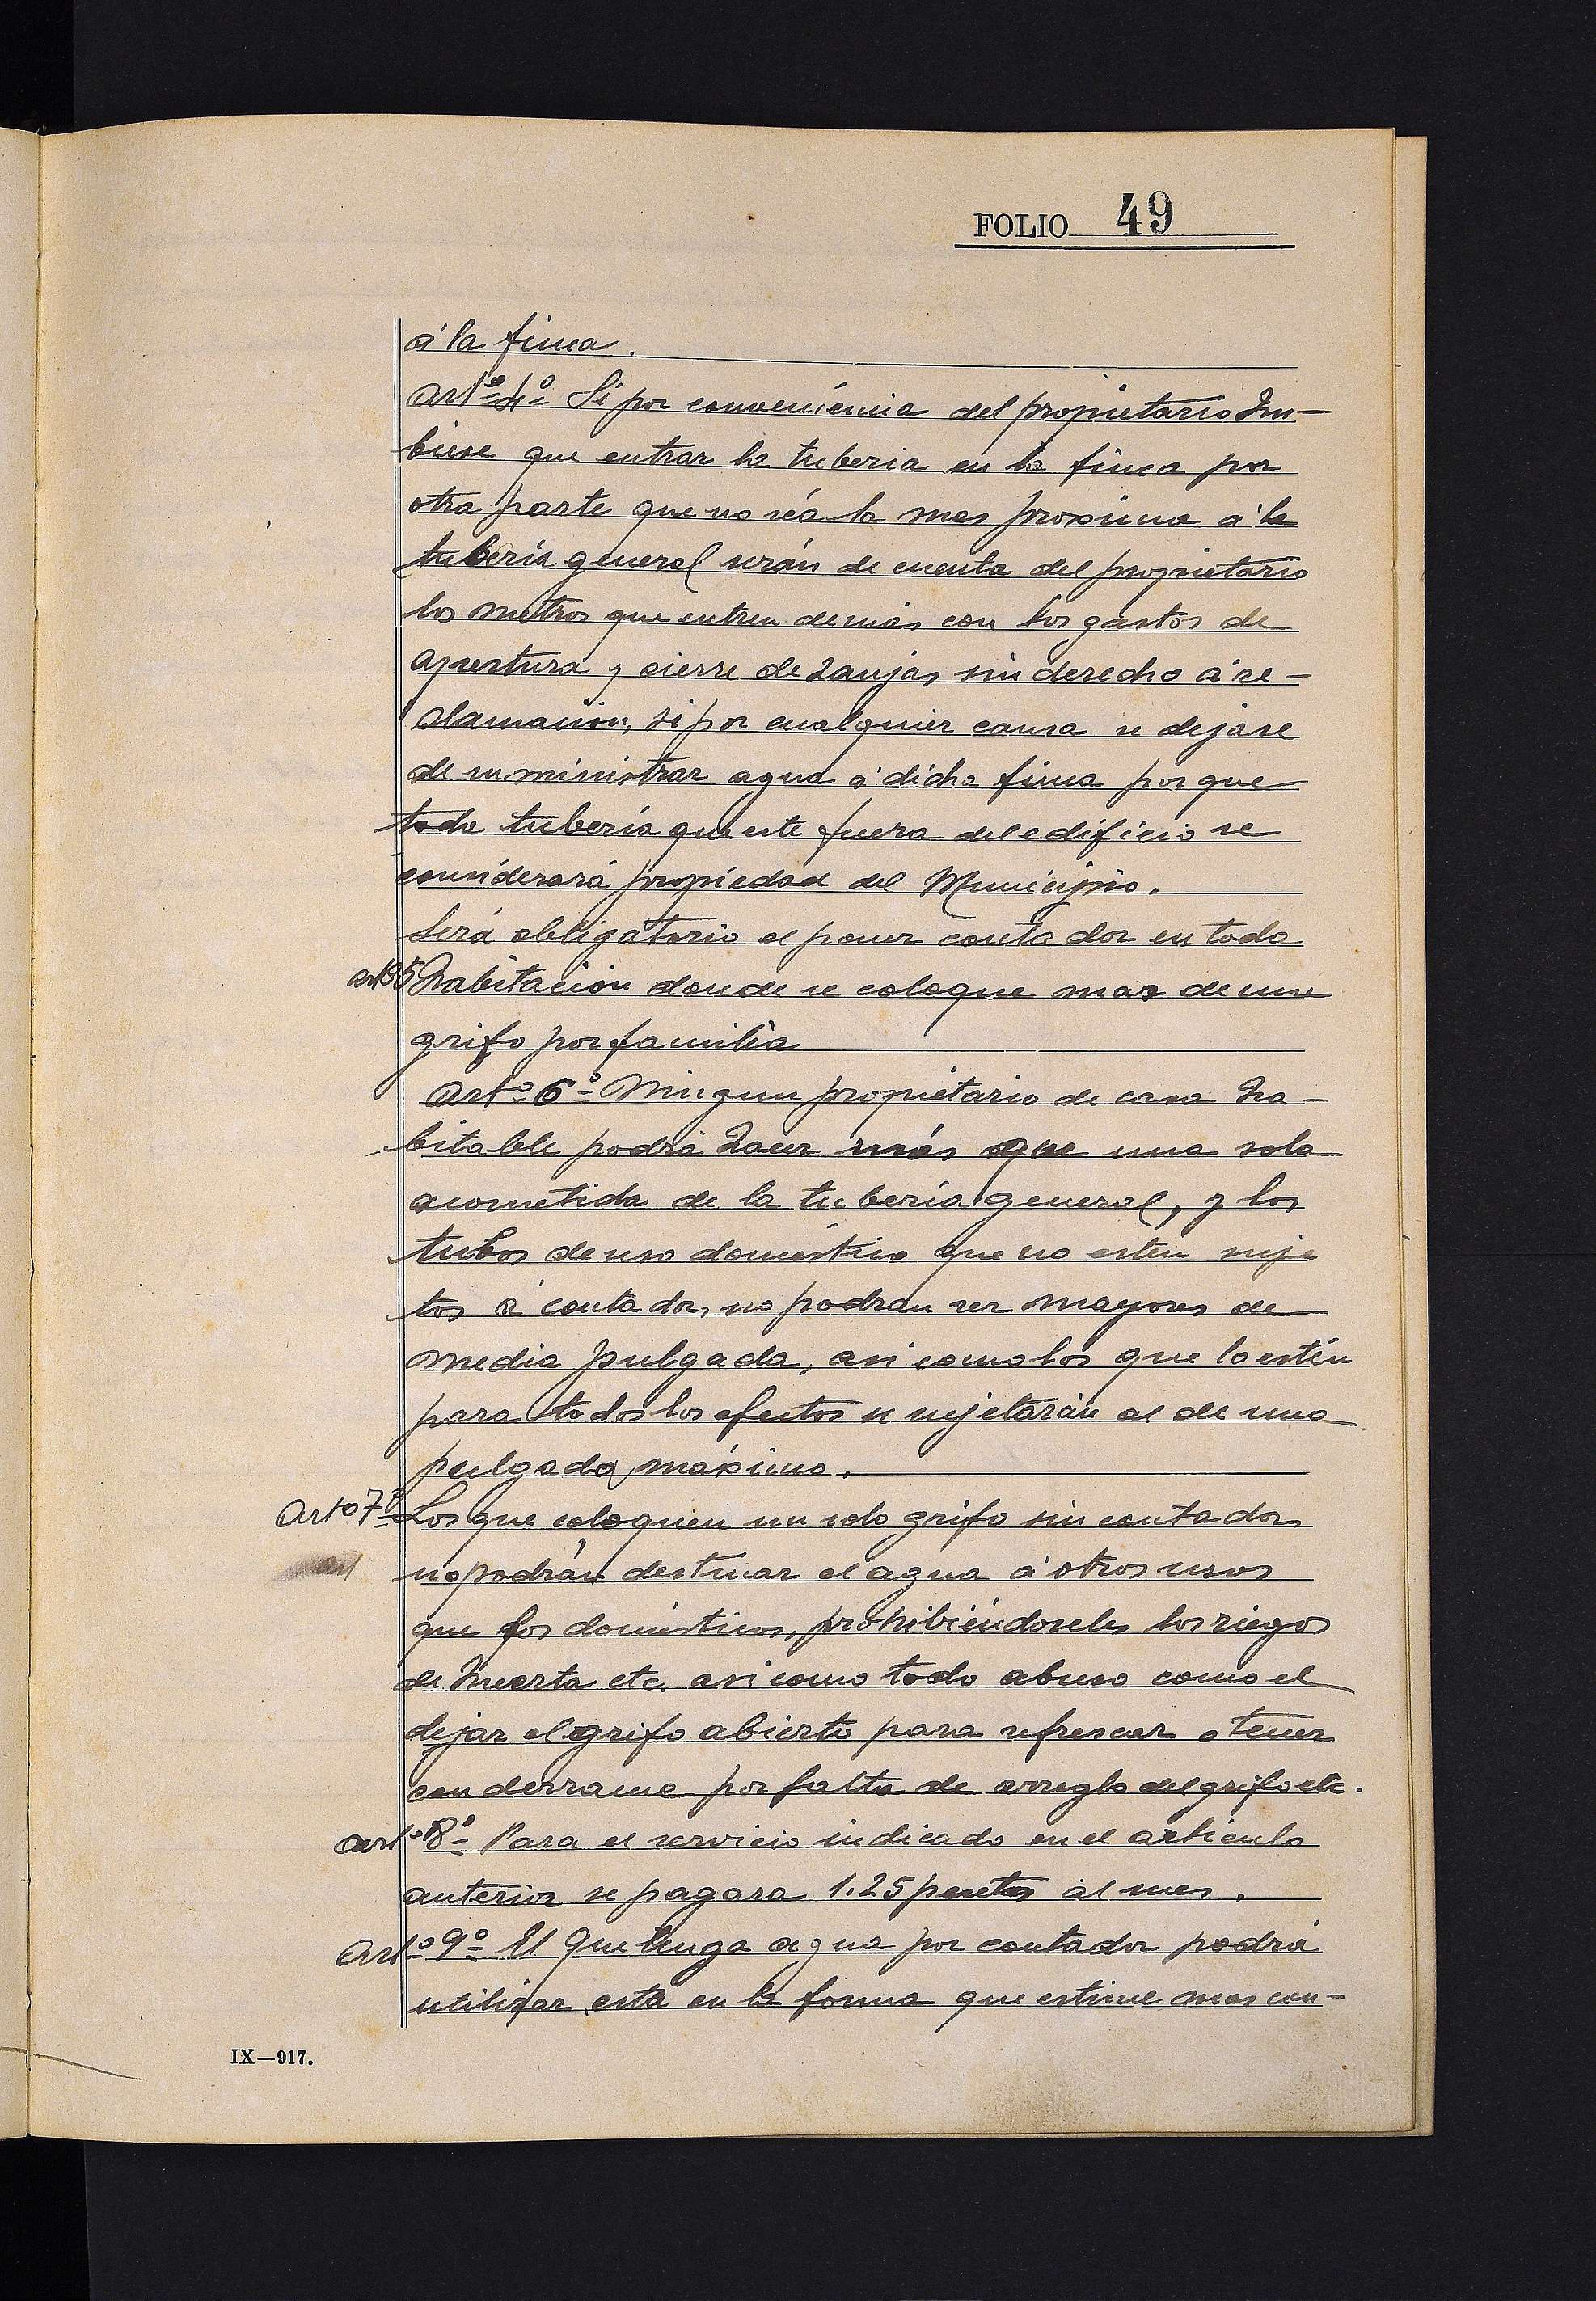 FOLIO 49
á la finca.
Artº 4º Si por conveniéncia del propietario hu-
biese que entrar la tuberia en la finca por
otra parte que no séa la mas proxima á la
tubería general serán de cuenta del propietario
los metros que entren demás con los gastos de
apertura y cierre de zanjas sin derecho á re-
clamación, si por cualquier causa se dejase
de suministrar agua á dicha finca por que
toda tubería que este fuera del edificio se
considerará propiedad del Municipio.
Será obligatorio el poner contador en toda
artº5 habitación donde se coloque mas de un
grifo por familia
Artº 6º Ningun propietario de casa ha-
bitable podrá hacer más que una sola
acometida de la tubería general, y los
tubos de uso doméstico que no esten suje
tos á contador, no podrán ser mayores de
media pulgada, asi como los que lo estén
para todos los efectos se sujetarán al de una
pulgada máximo.
Artº 7º Los que coloquen un solo grifo sin contador
art no podrán destinar el agua á otros usos
que los domésticos, prohibiéndoseles los riegos
de huerta etc. asi como todo abuso como el
dejar el grifo abierto para refrescar o tener
con derrame por falta de arreglo del grifo etc.
artº 8º Para el servicio indicado en el artículo
anterior se pagara 1.25 pesetas al mes.
Artº 9º El que tenga agua por contador podrá
utilizar esta en la forma que estime mas con-
IX—917.